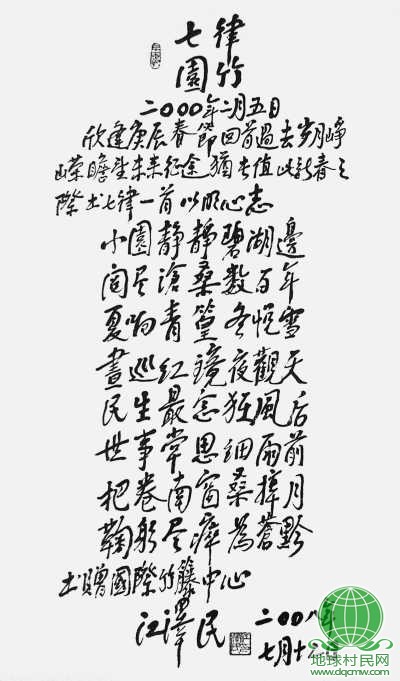 七律
園竹
二000年二月五日
欣逢庚辰春節回首過去岁月峥
嵘瞻望未来征途猶长值此新春之
際书七律一首以明心志
小園静静碧湖邊
阅尽滄桑数百年
夏响青篁冬悦雪
晝巡红镜夜觀天
民生最念狂風后
世事常思细雨前
把卷南窗桑梓月
鞠躬尽瘁為蒼黔
书贈國際竹藤中心
江澤民
二00八年
七月十
地球村民网
www.dqcmw.com